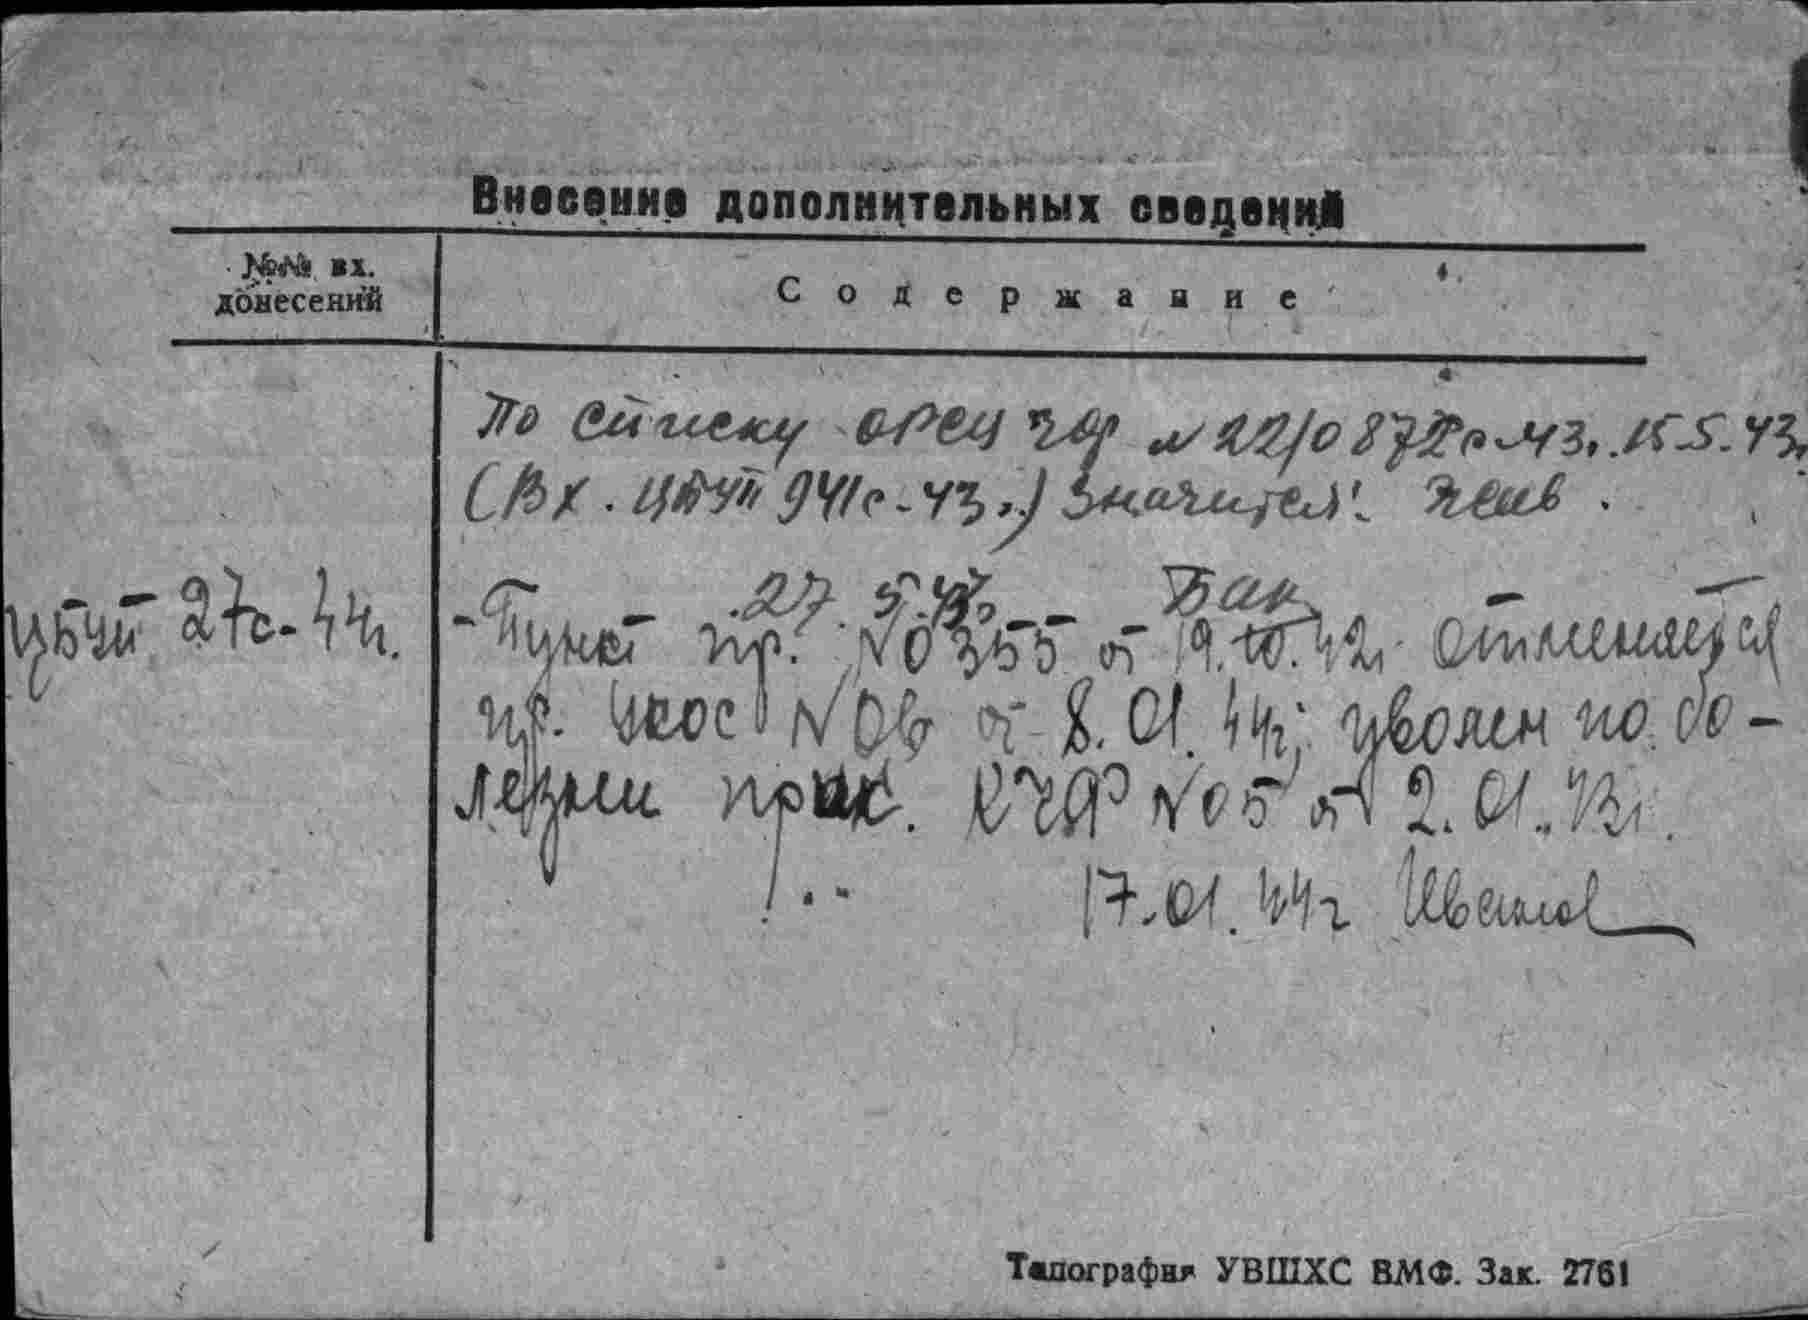 Внесение дополнительных сведений
№№ вх.
донесений
Содержание
По списку ОРСЦ ЧФ № 22/0872с-43г. 15.5.43г.
(Вх. ЦБУП 941с-43г.) значится: жив.
27.5.43г. Бак
ЦБУП 27с-44г.
- Пункт пр. № 0355 от 19.10.42г. отменяется
пр. № 06 от 8.01.44г; уволен по бо-
лезни прик. КЧФ № 05 от 2.01.43г.
17.01.44г
Типография УВШХС ВМФ. Зак. 2761